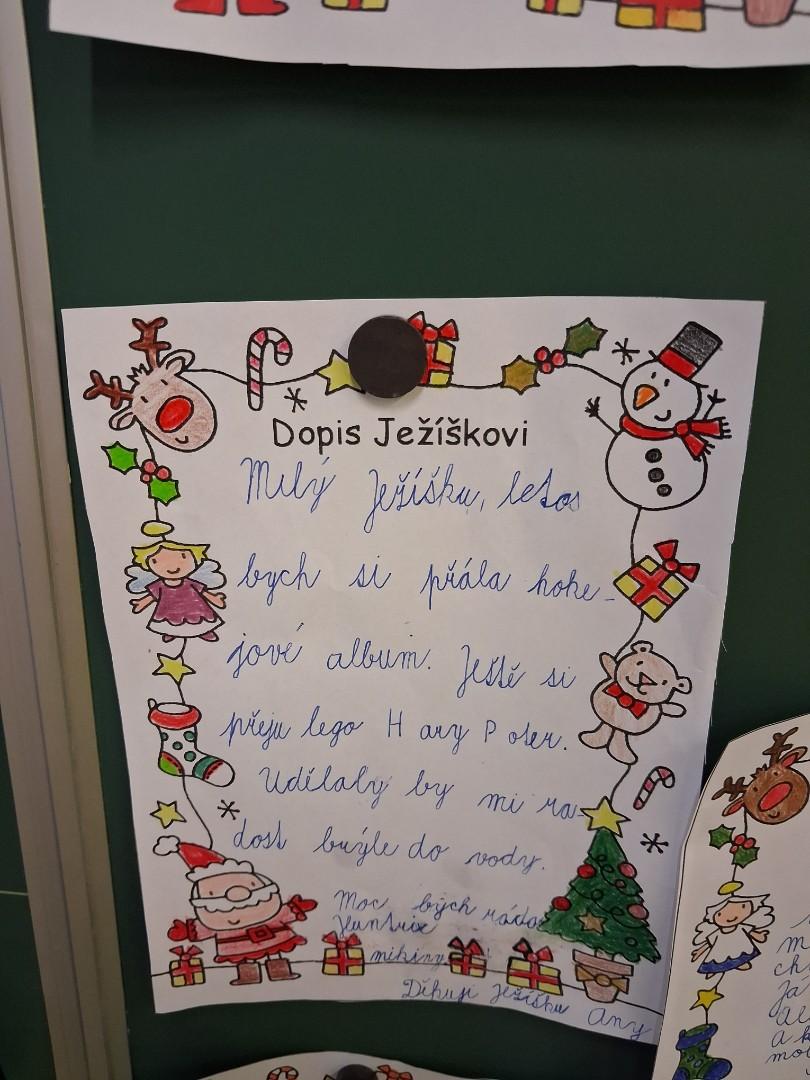 Dopis Ježíškovi
Milý Ježíšku, letos
bych si přála hoke-
jové album. Ještě si
přeju lego Hary Poter.
Udělaly by mi ra-
dost brýle do vody.
Moc bých ráda
Huntrix
mikiny
Děkuji Ježíšku Any
m
ch
Já
a k
mo